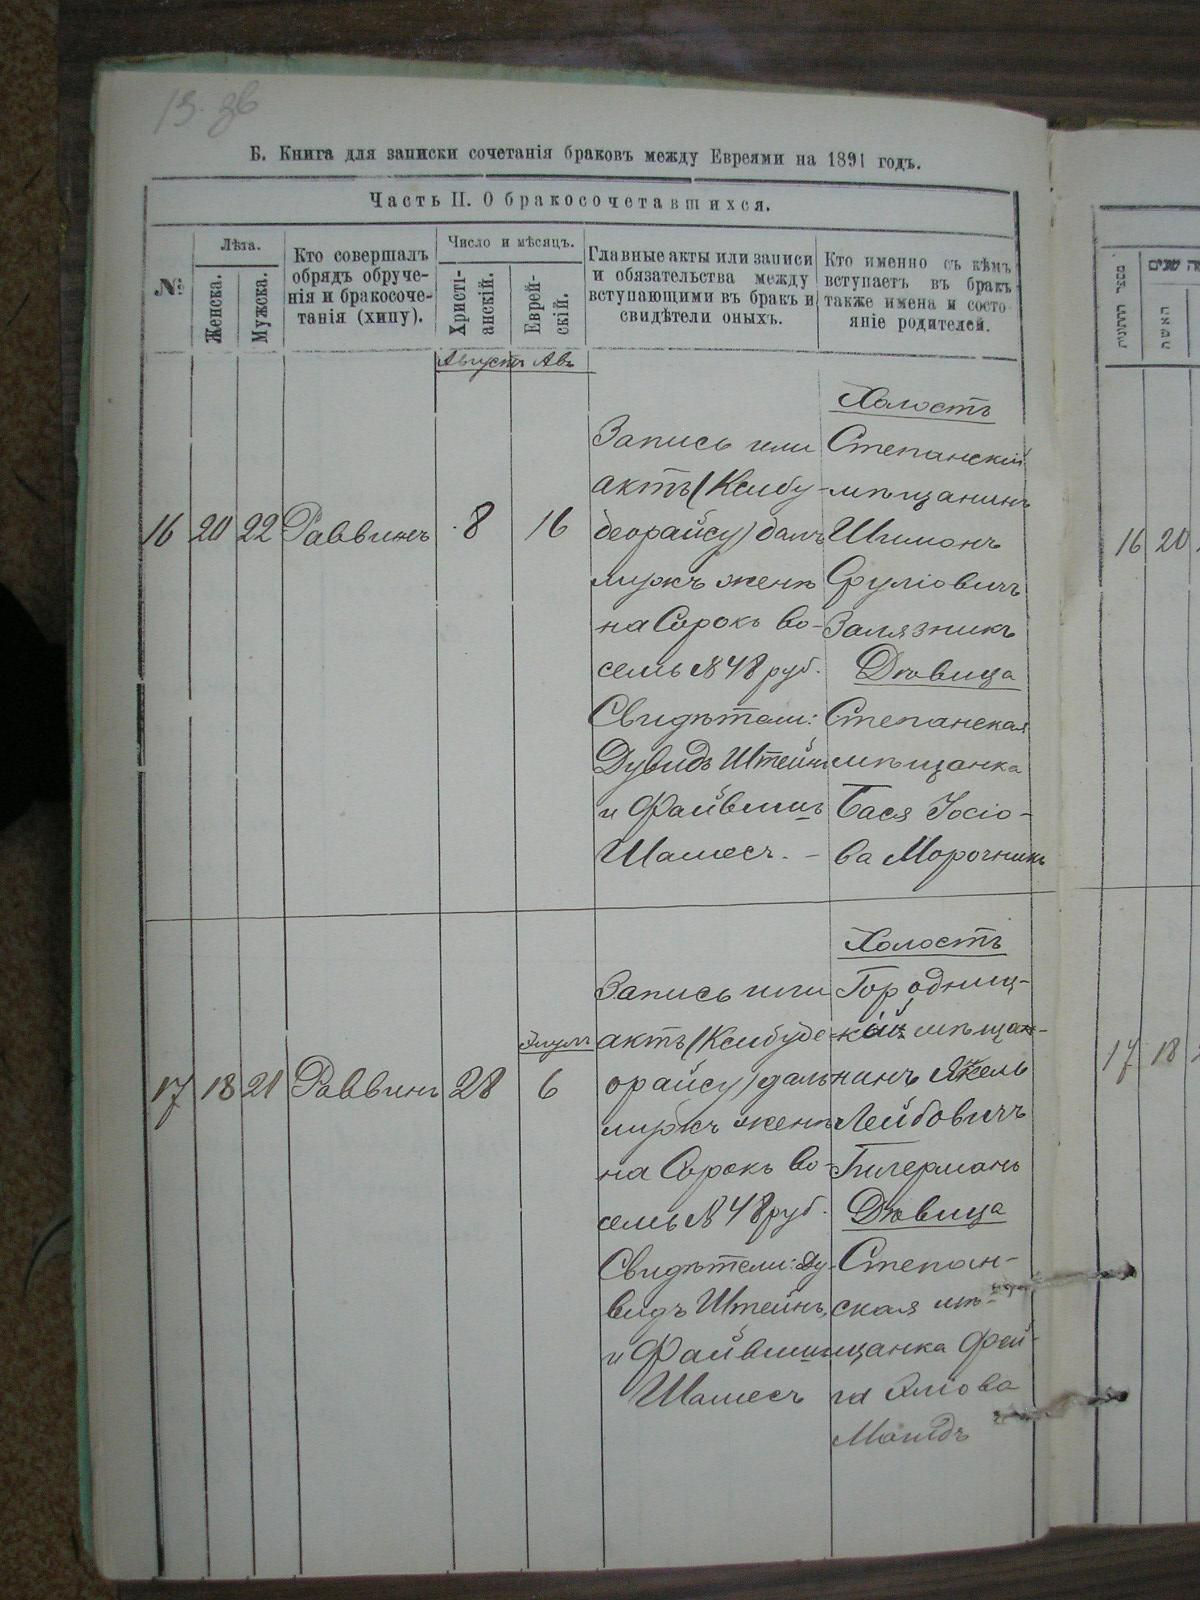 Б. Книга для записки сочетанія браковъ между Евреями на 1891 годъ.
Часть II. О бракосочетавшихся.
№
Лѣта.
Женска.
Мужска.
Кто совершалъ
обрядъ обруче-
нія и бракосоче-
танія (хипу).
Число и мѣсяцъ.
Христі-
анскій.
Еврей-
скій.
Главные акты или записи
и обязательства между
вступающими въ бракъ и
свидѣтели оныхъ.
Кто именно съ кѣмъ
вступаетъ въ бракъ
также имена и состо-
яніе родителей.
Августъ Авъ
16 20 22 Раввинъ 8 16
Запись или
актъ (Ксибу-
беорайсу) далъ
мужъ женѣ
на Сорокъ во-
семь № 48 руб.
Свидѣтели:
Дувидъ Штейнъ
и Файвишъ
Шамесъ. –
Холостъ
Степанскій
мѣщанинъ
Шимонъ
Сруліовичъ
Залязникъ
Дѣвица
Степанская
мѣщанка
Бася Іосіо-
ва Морочникъ
Элулъ
17 18 21 Раввинъ 28 6
Запись или
актъ (Ксибуде-
орайсу) далъ
мужъ женѣ
на Сорокъ во-
семь № 48 руб.
Свидѣтели: Ду-
видъ Штейнъ,
и Файвишъ
Шамесъ
Холостъ
Городниц-
кій мѣщан-
нинъ Янкель
Лейбовичъ
Гилерманъ
Дѣвица
Степан-
ская мѣ-
щанка Фей-
га Яліова
מספר
האשה
16 20
17 18